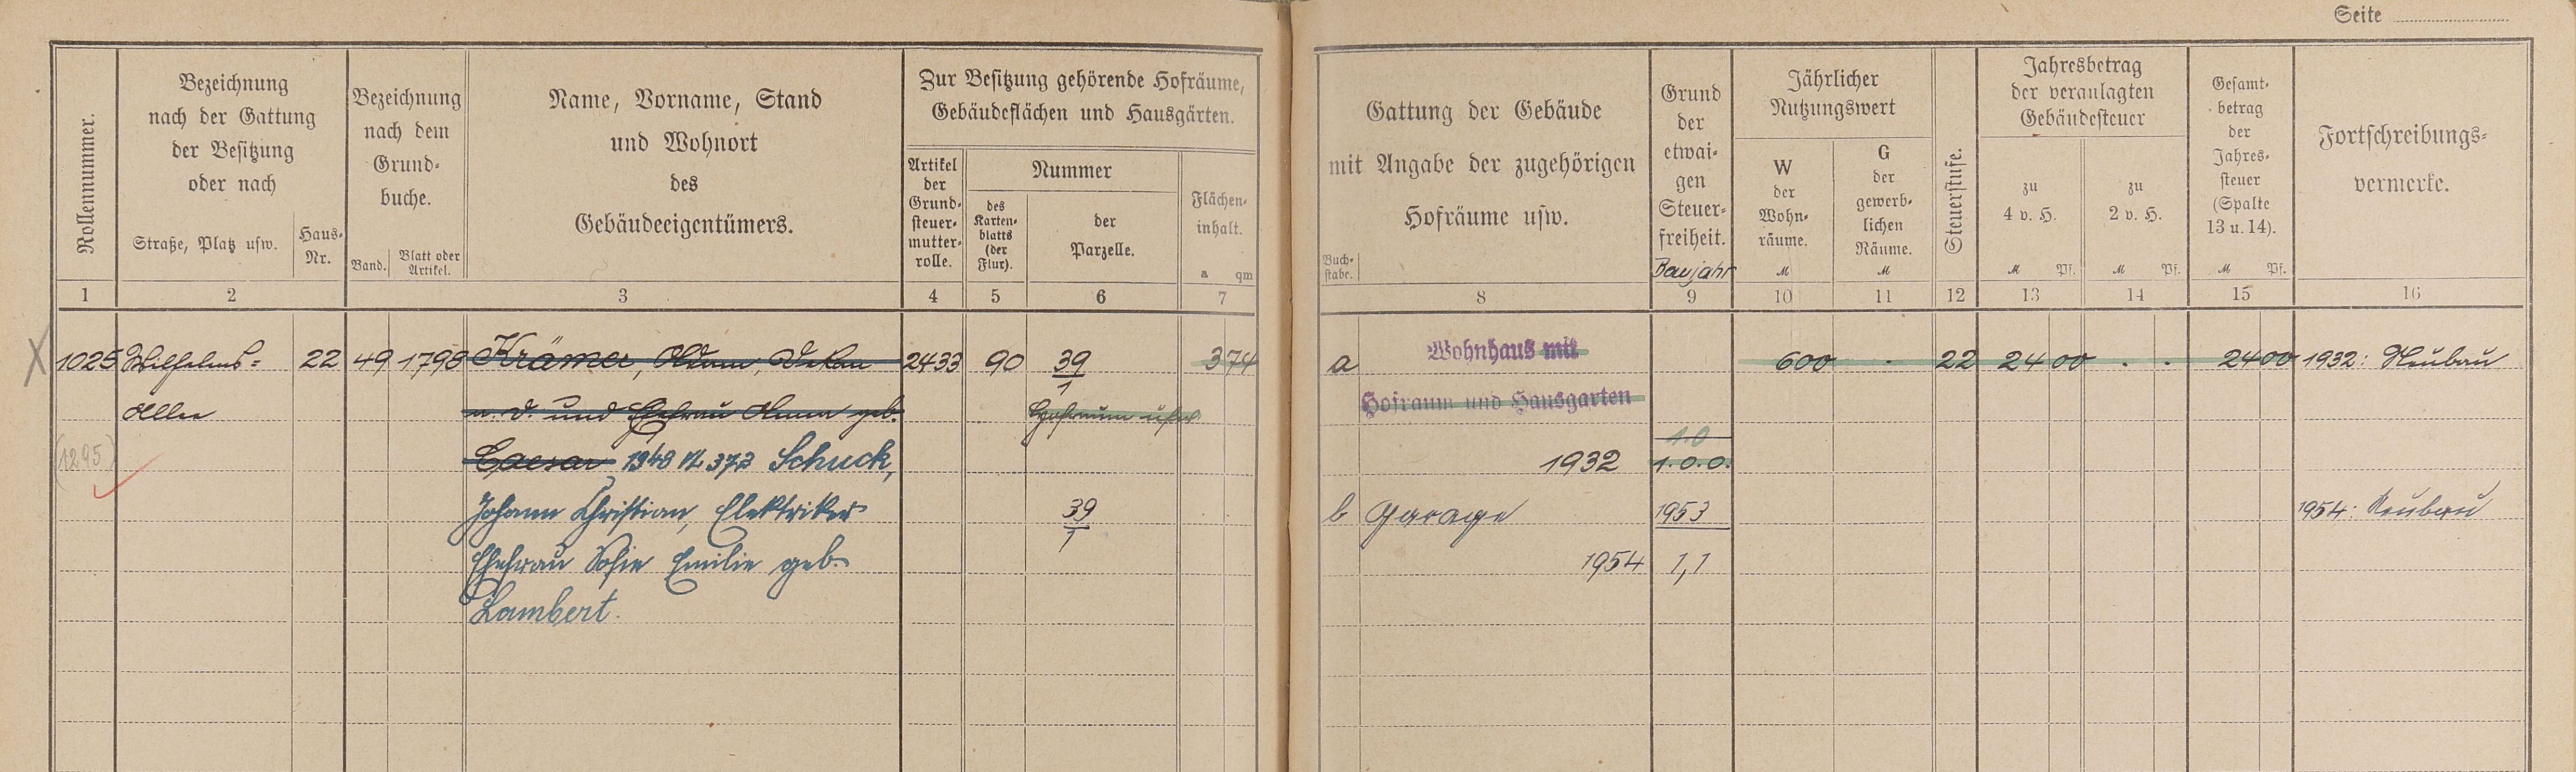 Seite
Rollennummer.
Bezeichnung
nach der Gattung
der Besitzung
oder nach
Straße, Platz usw.
Haus-
Nr.
Bezeichnung
nach dem
Grund-
buche.
Band.
Blatt oder
Artikel.
Name, Vorname, Stand
und Wohnort
des
Gebäudeeigentümers.
Zur Besitzung gehörende Hofräume,
Gebäudeflächen und Hausgärten.
Artikel
der
Grund-
steuer-
mutter-
rolle.
Nummer
des
Karten-
blatts
(der
Flur).
der
Parzelle.
Flächen-
inhalt.
a qm
Gattung der Gebäude
mit Angabe der zugehörigen
Hofräume usw.
Buch-
stabe.
Grund
der
etwai-
gen
Steuer-
freiheit.
Baujahr
Jährlicher
Nutzungswert
W
der
Wohn-
räume.
M
G
der
gewerb-
lichen
Räume.
M
Steuerstufe.
Jahresbetrag
der veranlagten
Gebäudesteuer
zu
4 v. H.
M Pf.
zu
2 v. H.
M Pf.
Gesamt-
betrag
der
Jahres-
steuer
(Spalte
13 u. 14).
M Pf.
Fortschreibungs-
vermerke.
1 2 3 4 5 6 7 8 9 10 11 12 13 14 15 16
X 1025 Wilhelms= 22 49 1798 Krämer, Adam, Dekan 2433 90 39/1 3 74 a Wohnhaus mit 600 - 22 24 00 . . 24 00 1932: Neubau
Allee a. D. und Ehefrau Anna geb. Hofraum usw. Hofraum und Hausgarten
1.0
(1295) Caesar 1948 Schuck, 1932 1.0.0.
Johann Christian, Elektriker 39/1 b Garage 1953 1954: Neubau
Ehefrau Sofie Emilie geb. 1954 1,1
Lambert.